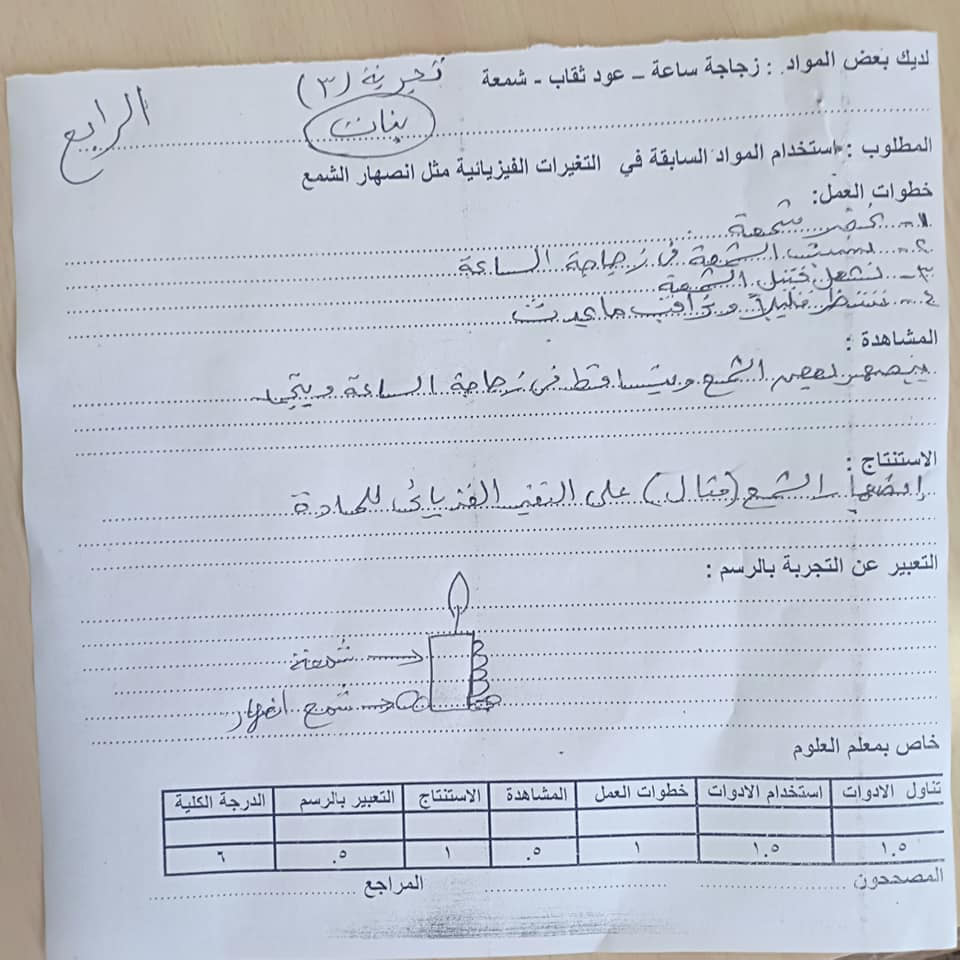 لديك بعض المواد : زجاجة ساعة – عود ثقاب - شمعة
تجربة (٣)
بنات
الرابع
المطلوب : استخدام المواد السابقة في التغيرات الفيزيائية مثل انصهار الشمع
خطوات العمل:
١- نحضر شمعة
٢- نثبت الشمعة في زجاجة الساعة
٣- نشعل فتيل الشمعة
٤- ننتظر قليلاً ونراقب ما يحدث
المشاهدة :
ينصهر بعض الشمع ويتساقط في زجاجة الساعة ويتجمد
الاستنتاج :
انصهار الشمع (مثال) على التغير الفيزيائي للمادة
التعبير عن التجربة بالرسم :
شمعة
شمع انصهار
خاص بمعلم العلوم
تناول الادوات استخدام الادوات خطوات العمل المشاهدة الاستنتاج التعبير بالرسم الدرجة الكلية
١.٥ ١.٥ ١ .٥ ١ .٥ ٦
المصححون المراجع